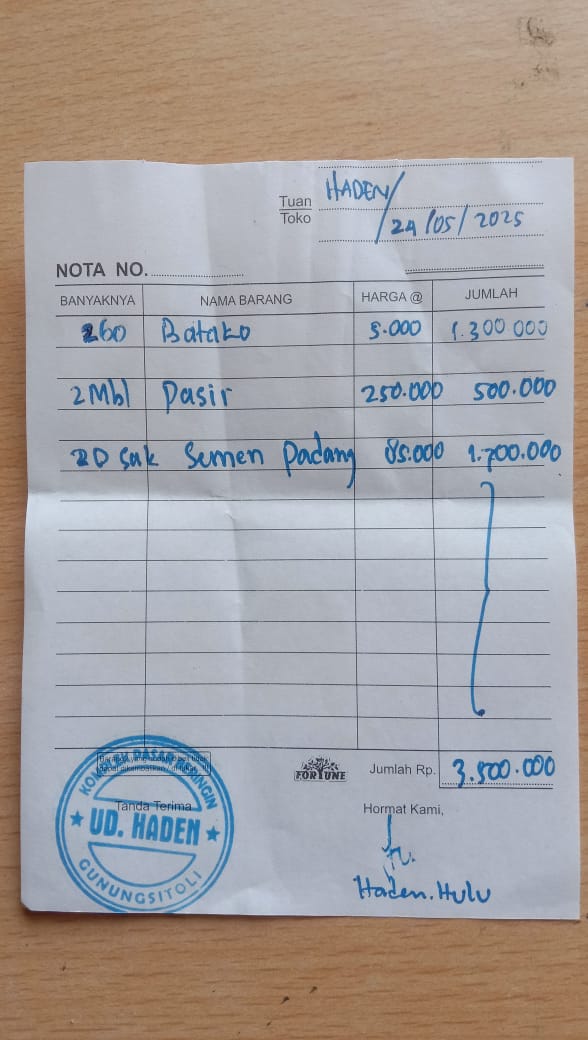 Tuan HADEN/
Toko /24/05/2025
NOTA NO.
BANYAKNYA NAMA BARANG HARGA @ JUMLAH
260 Batako 5.000 1.300 000
2 Mbl Pasir 250.000 500.000
20 Sak Semen Padang 85.000 1.700.000
FORTUNE Jumlah Rp. 3.500.000
Tanda Terima Hormat Kami,
UD. HADEN
GUNUNGSITOLI
Haden. Hulu